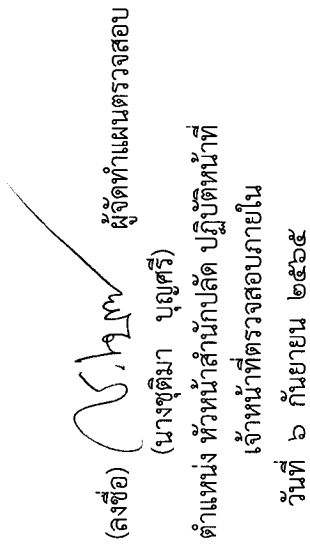 (ลงชื่อ) ผู้จัดทำแผนตรวจสอบ
(นางชุติมา บุญศรี)
ตำแหน่ง หัวหน้าสำนักปลัด ปฏิบัติหน้าที่
เจ้าหน้าที่ตรวจสอบภายใน
วันที่ ๖ กันยายน ๒๕๖๕